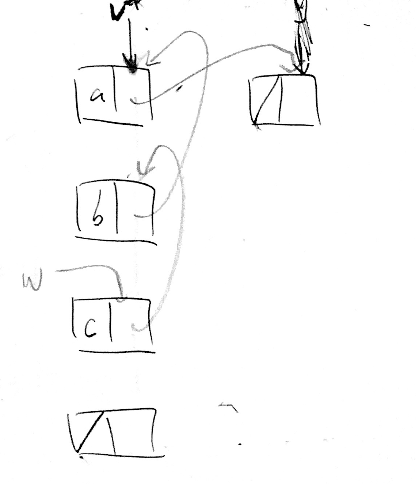 a
b
w
c